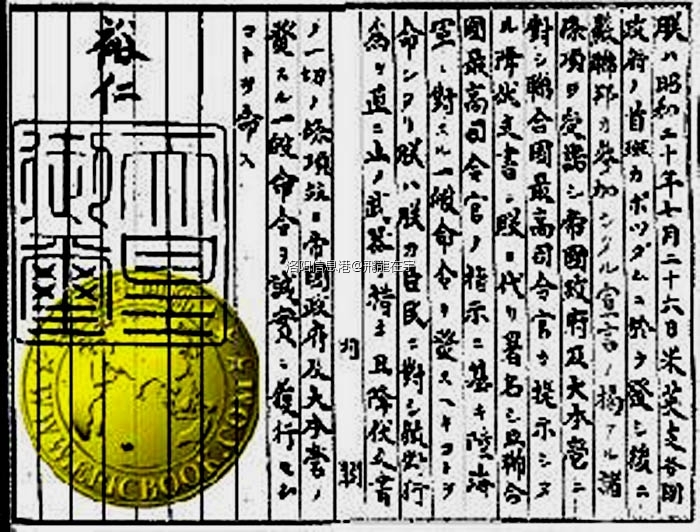 朕ハ昭和二十年七月二十六日米英支各國
政府ノ首班カポツダムニ於テ發シ後ニ
蘇聯邦カ參加シタル宣言ノ掲クル諸
條項ヲ受諾シ帝國政府及大本營ニ
對シ聯合國最高司令官カ提示シタ
ル降伏文書ニ朕ニ代リ署名シ且聯合
國最高司令官ノ指示ニ基キ陸海
軍ニ對スル一般命令ヲ發スヘキコトヲ
命シタリ朕ハ朕カ臣民ニ對シ敵對行
爲ヲ直ニ止メ武器ヲ措キ且降伏文書
内閣
ノ一切ノ條項竝ニ帝國政府及大本營ノ
發スル一般命令ヲ誠實ニ履行セム
コトヲ命ス
裕仁
天皇
御璽
洛阳信息港@
WWW.EPICBOOK.COM